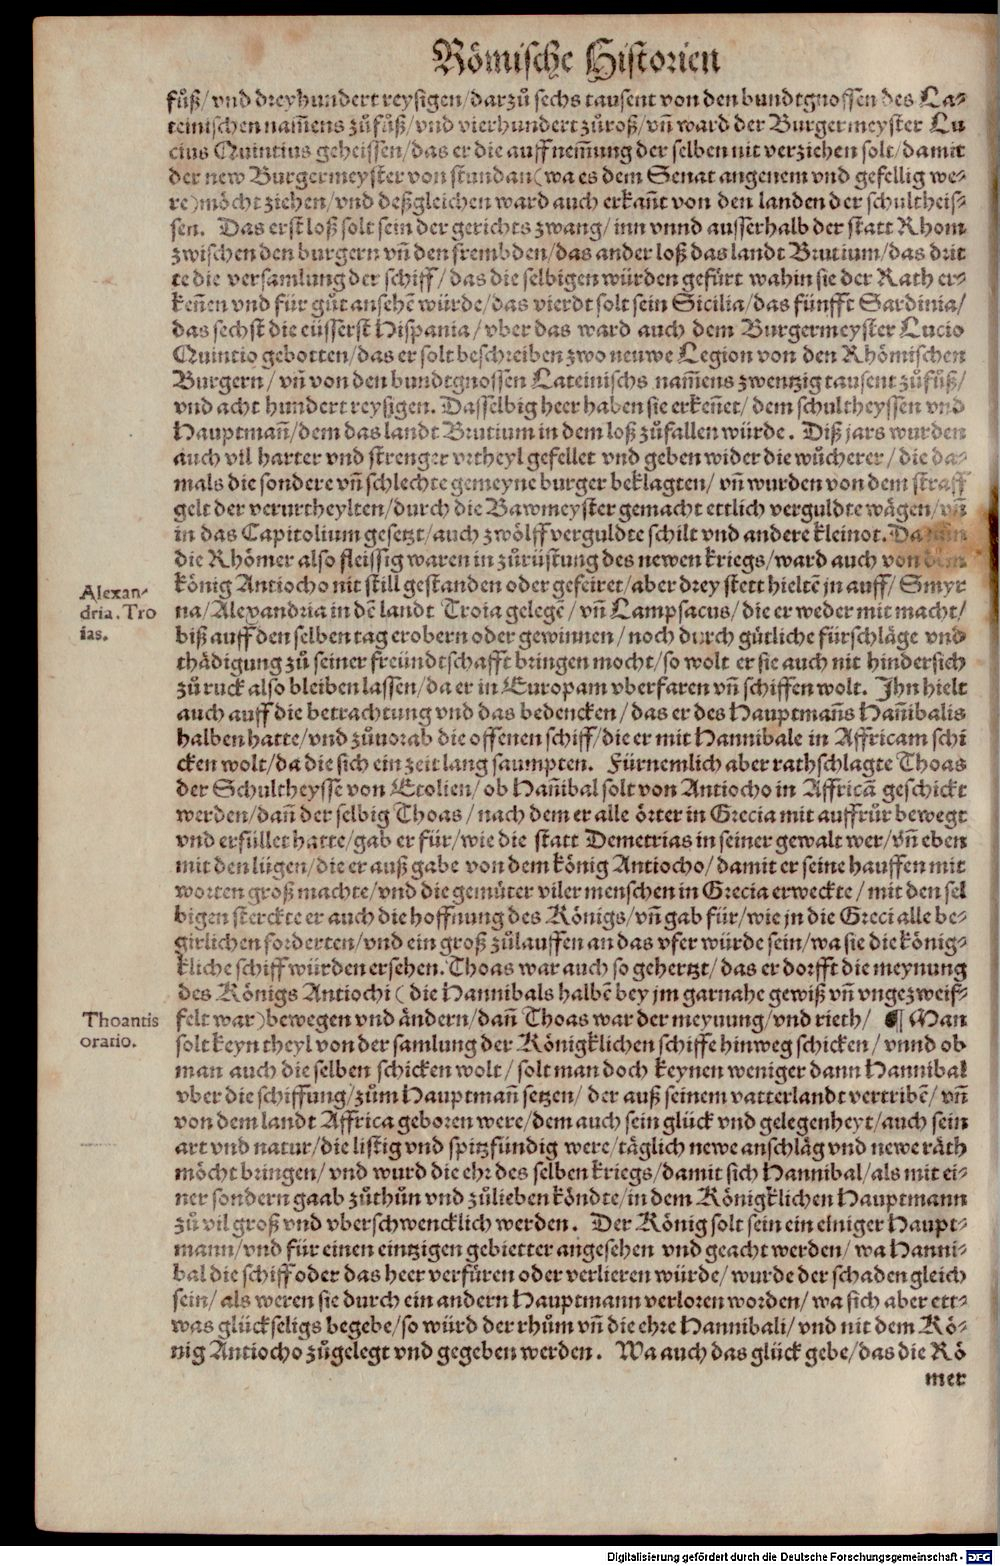 Römische Historien
fůß/ vnd dreyhundert reysigen/ darzů sechs tausent von den bundtgnossen des La-
teinischen nam̃ens zůfůß/ vnd vierhundert zůroß/ vñ ward der Burgermeyster Lu
cius Quintius geheissen/ das er die auffnem̃ung der selben nit verziehen solt/ damit
der new Burgermeyster von stundan (wa es dem Senat angenem vnd gefellig we-
re) möcht ziehen/ vnd deßgleichen ward auch erkañt von den landen der schultheis-
sen. Das erst loß solt sein der gerichts zwang/ inn vnnd ausserhalb der statt Rhom
zwischen den burgern vñ den frembden/ das ander loß das landt Brutium/ das drit
te die versamlung der schiff/ das die selbigen würden gefürt wahin sie der Rath er-
keñen vnd für gůt ansehẽ würde/ das vierdt solt sein Sicilia/ das fünfft Sardinia/
das sechst die eüsserst Hispania/ vber das ward auch dem Burgermeyster Lucio
Quintio gebotten/ das er solt beschreiben zwo neuwe Legion von den Rhömischen
Burgern/ vñ von den bundtgnossen Lateinischs nam̃ens zwentzig tausent zůfůß/
vnd acht hundert reysigen. Dasselbig heer haben sie erkeñet/ dem schultheyssen vnd
Hauptmañ/ dem das landt Brutium in dem loß zůfallen würde. Diß jars wurden
auch vil harter vnd strenger vrtheyl gefellet vnd geben wider die wůcherer/ die da-
mals die sondere vñ schlechte gemeyne burger beklagten/ vñ wurden von dem straff
gelt der verurtheylten/ durch die Bawmeyster gemacht ettlich verguldte wägen/ vñ
in das Capitolium gesetzt/ auch zwölff verguldte schilt vnd andere kleinot. Da nun
die Rhömer also fleissig waren in zůrüstung des newen kriegs/ ward auch von dem
Alexan-
dria. Tro
ias.
könig Antiocho nit still gestanden oder gefeiret/ aber drey stett hieltẽ jn auff/ Smyr
na/ Alexandria in dẽ landt Troia gelegẽ/ vñ Lampsacus/ die er weder mit macht/
biß auff den selben tag erobern oder gewinnen/ noch durch gůtliche fürschläge vnd
thädigung zů seiner freündtschafft bringen mocht/ so wolt er sie auch nit hindersich
zů ruck also bleiben lassen/ da er in Europam vberfaren vñ schiffen wolt. Ihn hielt
auch auff die betrachtung vnd das bedencken/ das er des Hauptmañs Hañibalis
halben hatte/ vnd zůuorab die offenen schiff/ die er mit Hannibale in Affricam schi
cken wolt/ da die sich ein zeit lang saumpten. Fürnemlich aber rathschlagte Thoas
der Schultheyssẽ von Etolien/ ob Hañibal solt von Antiocho in Affricã geschickt
werden/ dañ der selbig Thoas/ nach dem er alle örter in Grecia mit auffrůr bewegt
vnd erfüllet hatte/ gab er für/ wie die statt Demetrias in seiner gewalt wer/ vñ eben
mit den lügen/ die er auß gabe von dem könig Antiocho/ damit er seine hauffen mit
worten groß machte/ vnd die gemůter viler menschen in Grecia erweckte/ mit den sel
bigen sterckte er auch die hoffnung des Königs/ vñ gab für/ wie jn die Greci alle be-
girlichen forderten/ vnd ein groß zůlauffen an das vfer würde sein/ wa sie die könig-
kliche schiff würden ersehen. Thoas war auch so gehertzt/ das er dorfft die meynung
des Königs Antiochi (die Hannibals halbẽ bey jm garnahe gewiß vñ vngezweif-
Thoantis
oratio.
felt war) bewegen vnd ändern/ dañ Thoas war der meynung/ vnd rieth/ ¶ Man
solt keyn theyl von der samlung der Königklichen schiffe hinweg schicken/ vnnd ob
man auch die selben schicken wolt/ solt man doch keynen weniger dann Hannibal
vber die schiffung/ zům Hauptmañ setzen/ der auß seinem vatterlandt vertribẽ/ vñ
von dem landt Affrica geboren were/ dem auch sein glück vnd gelegenheyt/ auch sein
art vnd natur/ die listig vnd spitzfündig were/ täglich newe anschläg vnd newe räth
möcht bringen/ vnd wurd die ehr des selben kriegs/ damit sich Hannibal/ als mit ei-
ner sondern gaab zůthůn vnd zůlieben köndte/ in dem Königklichen Hauptmann
zů vil groß vnd vberschwencklich werden. Der König solt sein ein einiger Haupt-
mann/ vnd für einen eintzigen gebietter angesehen vnd geacht werden/ wa Hanni-
bal die schiff oder das heer verfüren oder verlieren würde/ wurde der schaden gleich
sein/ als weren sie durch ein andern Hauptmann verloren worden/ wa sich aber ett-
was glückseligs begebe/ so würd der rhům vñ die ehre Hannibali/ vnd nit dem Kö-
nig Antiocho zůgelegt vnd gegeben werden. Wa auch das glück gebe/ das die Rö
mer
Digitalisierung gefördert durch die Deutsche Forschungsgemeinschaft - DFG